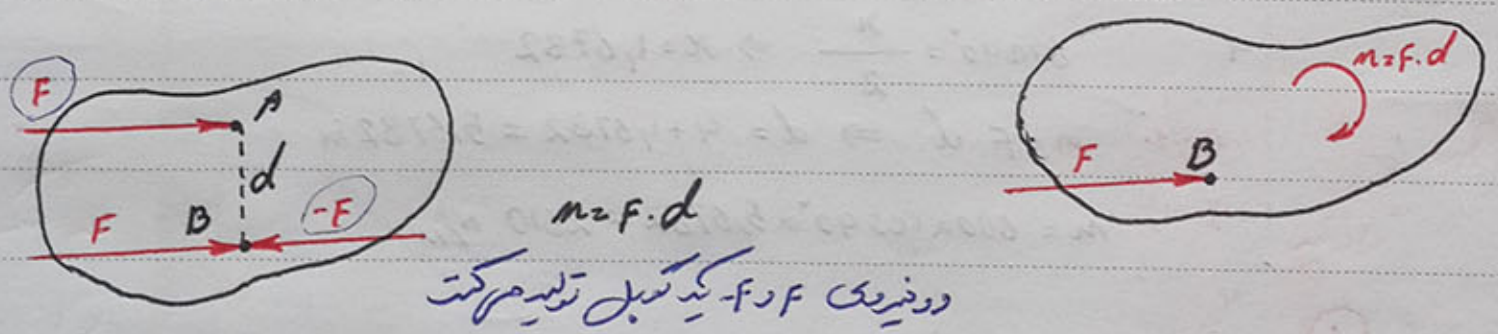 F
A
d
F
B
-F
m = F.d
دو نیروی F و F- یک کوپل تولید می‌کند
m = F.d
F
B